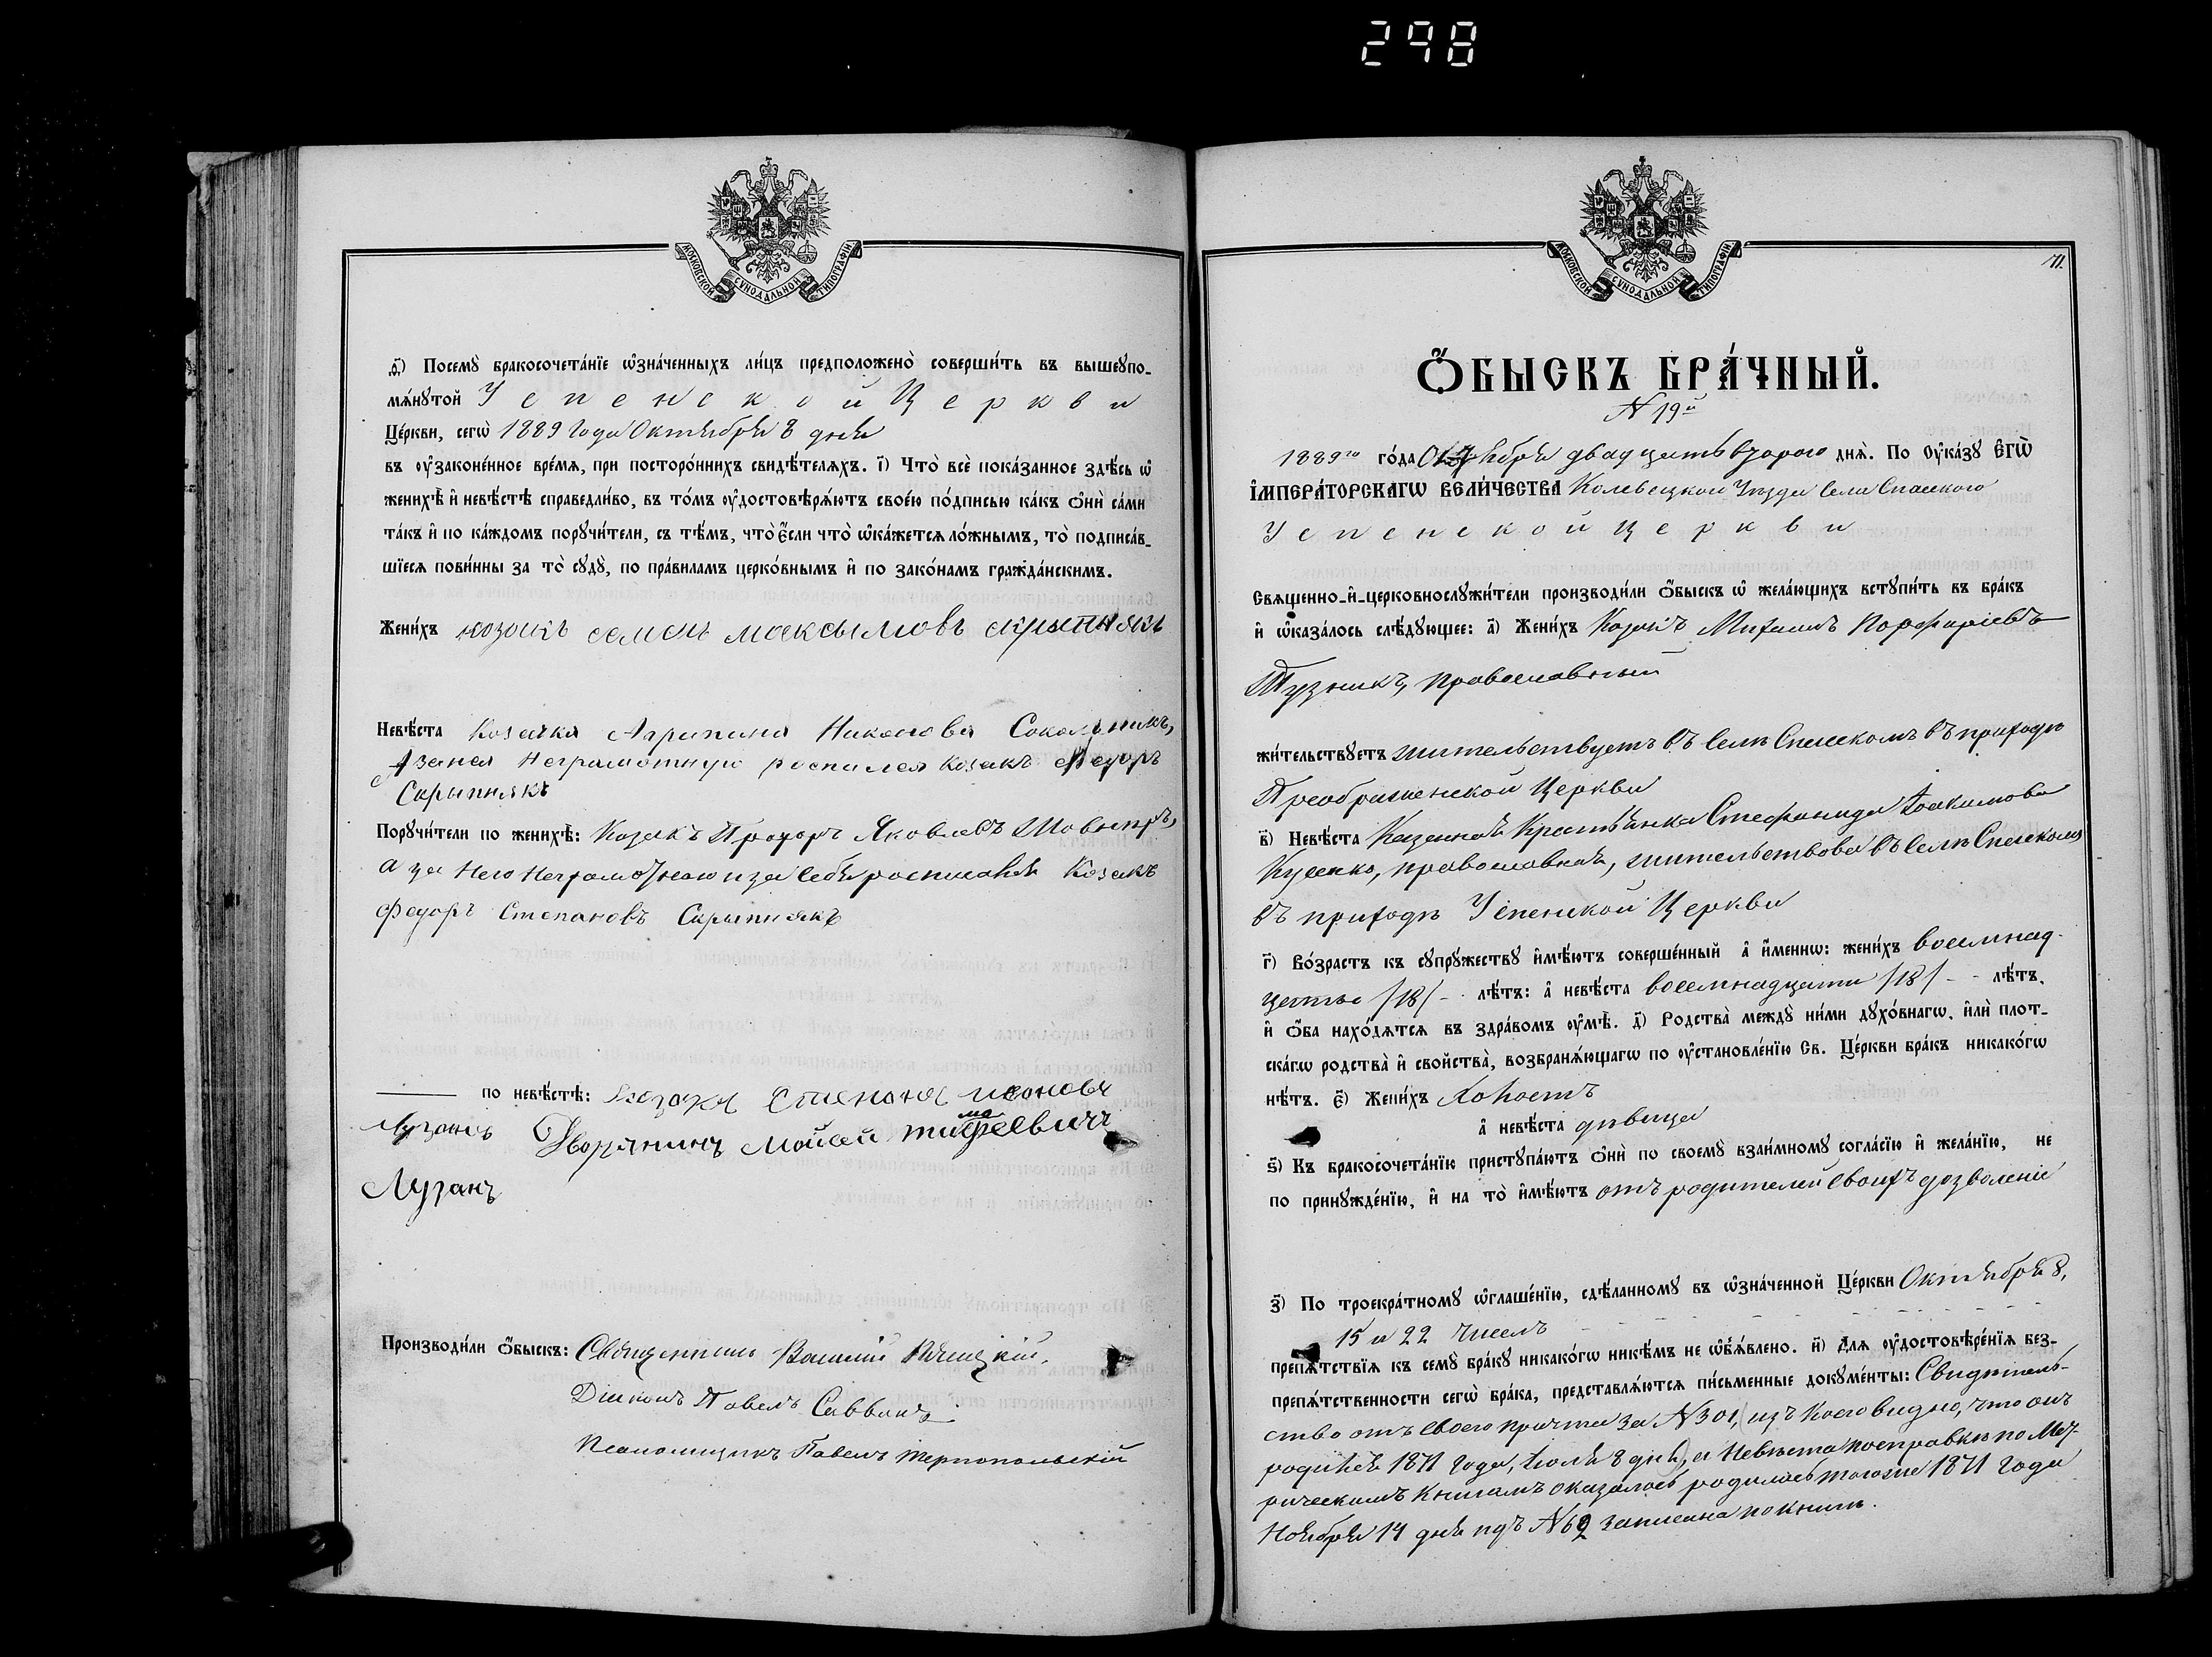 298
МОСКОВСКОЙ СУНОДАЛЬНОЙ ТИПОГРАФІИ
ѳ҃) Посемꙋ̀ бракосочета́нїе ѡ҆зна́ченныхъ ли́цъ предположено̀ соверши́ть въ вышеꙋпо-
мѧ́нꙋтой Успенской Церкви
Це́ркви, сегѡ̀ 1889 года Октября 8 дня
въ оу҆законе́нное вре́мѧ, при посторо́ннихъ свидѣ́телѧхъ. і҃) Что̀ всѐ пока́занное здѣ́сь ѡ҆
женихѣ̀ и҆ невѣ́стѣ справедли́во, въ то́мъ оу҆достовѣрѧ́ютъ свое́ю по́дписью ка́къ ѻ҆нѝ са́ми
та́къ и҆ по ка́ждомъ порꙋчи́тели, съ тѣ́мъ, что̀ є҆́сли что̀ ѡ҆ка́жетсѧ ло́жнымъ, то̀ подписа́в-
шїесѧ пови́нны за то̀ сꙋдꙋ̀, по пра́виламъ церко́внымъ и҆ по зако́намъ гражда́нскимъ.
Жени́хъ козакъ семенъ максымовъ скрыпнякъ
Невѣ́ста Козачка Агрипина Никонова Сокольникъ,
А за нея Неграмотную росписался козакъ Федоръ
Скрыпнякъ
Порꙋчи́тели по женихѣ̀: Козакъ Прохоръ Яковлевъ
а за Него Неграмотного и за себя росписався Козакъ
Федоръ Степановъ Скрыпнякъ
по невѣ́стѣ: козакъ
Лузанъ Дворянинъ Мойсей Тимофеевичъ
Лузанъ
Производи́ли ѻ҆́быскъ: Священникъ Василій
Діаконъ Павелъ Саввонъ
Псаломщикъ Павелъ Тернопольскій
71.
Ѻ҆́БЫСКЪ БРА́ЧНЫЙ.
N 19й
1889го го́да Октября двадцать второго днѧ̀. По Оу҆ка́зꙋ Е҆гѡ̀
І҆МПЕРА́ТОРСКАГѠ ВЕЛИ́ЧЕСТВА Уѣзда Села Спаского
Успенской Церкви
Свѧщенно-и҆-церковнослꙋжи́тели производи́ли ѻ҆́быскъ ѡ҆ жела́ющихъ встꙋпи́ть въ бра́къ
и҆ ѡ҆каза́лось слѣ́дꙋющее: а҃) Жени́хъ Козакъ Михаилъ Порфиріевъ
Тузникъ, православный
жи́тельствꙋетъ жительствуетъ въ селѣ Спасскомъ въ приходѣ
Преображенской Церкви
в҃) Невѣ́ста Казенная Крестьянка Стефанида Іоакимова
Кусенко, православная, жительствова въ Селѣ Спасскомъ
въ приходѣ Успенской Церкви
г҃) Во́зрастъ къ сꙋпрꙋ́жествꙋ и҆мѣ́ютъ соверше́нный а҆ и҆́меннѡ: жени́хъ восемнад-
цать /18/ - лѣ́тъ: а҆ невѣ́ста восемнадцати /18/ - - лѣ́тъ,
и҆ ѻ҆́ба нахо́дѧтсѧ въ здра́вомъ оу҆мѣ̀. д҃) Родства̀ междꙋ̀ ни́ми дꙋхо́внагѡ, и҆лѝ плот-
ска́гѡ родства̀ и҆ сво́йства̀, возбранѧ́ющагѡ по оу҆становле́нїю Св. Це́ркви бра́къ никако́гѡ
нѣ́тъ. є҃) Жени́хъ Холостъ
а҆ невѣ́ста дѣвица
ѕ҃) Къ бракосочета́нїю пристꙋпа́ютъ ѻ҆нѝ по своемꙋ̀ взаи́мномꙋ согла́сїю и҆ жела́нїю, не
по принꙋжде́нїю, и҆ на то̀ и҆мѣ́ютъ отъ родителей своихъ дозволеніе
з҃) По троекра́тномꙋ ѡ҆глаше́нїю, сдѣ́ланномꙋ въ ѡ҆зна́ченной Це́ркви Октября 8,
15 и 22 чиселъ
препѧ́тствїѧ къ семꙋ̀ бра́кꙋ никако́гѡ никѣ́мъ не ѡ҆б̾ѧ́влено. и҃) Длѧ оу҆достовѣре́нїѧ без-
препѧ́тственности сегѡ̀ бра́ка, представлѧ́ютсѧ пи́сьменные докꙋме́нты: Свидѣтель-
ство отъ своего причта за N 301, (изъ коего видно, что онъ
родился 1871 года, Іюля 8 дня), а Невѣста по справкѣ по Мет-
рическимъ Книгамъ оказалось родилась тогоже 1871 года
Ноября 14 дня подъ N 62 записана по книгѣ.